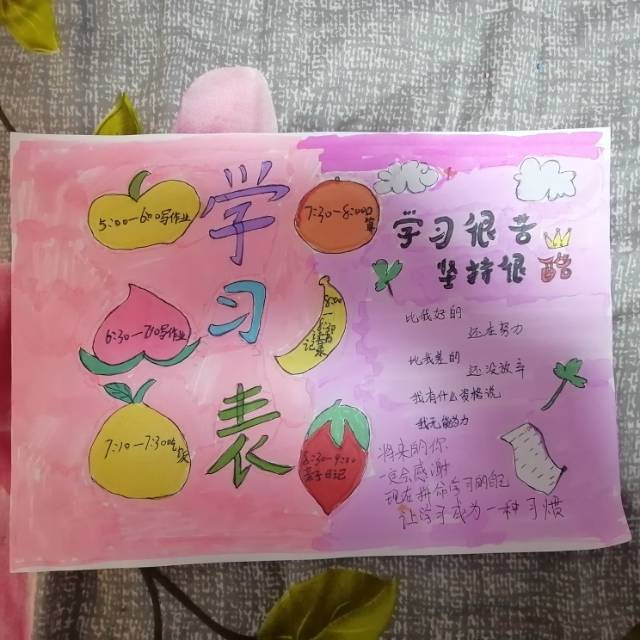 学习表
5:00—6:00写作业
6:30—7:00写作业
7:10—7:30
7:30—8:00
8:00
8:30—9:00
亲子日记
学习很苦
坚持很酷
比我好的
还在努力
比我差的
还没放弃
我有什么资格说
我无能为力
将来的你
一定会感谢
现在拼命学习的自己
让学习成为一种习惯